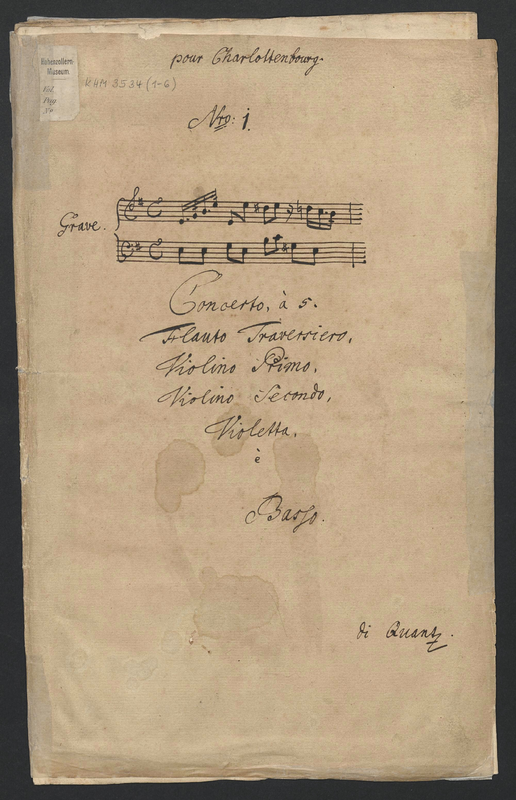 pour Charlottenbourg.
Hohenzollern
Museum
KHM 3534 (1-6)
Nro: 1.
Grave.
Concerto, à 5.
Flauto Traversiero,
Violino Primo,
Violino Secondo,
Violetta,
è
Basso.
di Quantz.